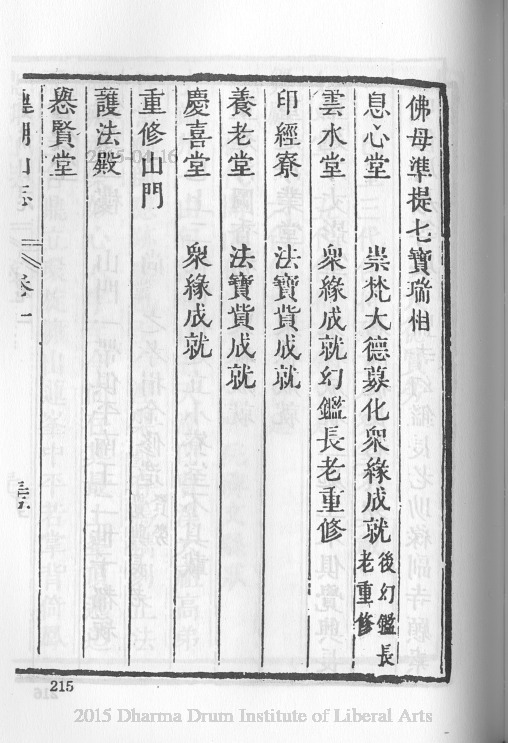 佛母準提七寶瑞相
息心堂 崇梵大德募化眾緣成就後幻鑑長老重修
雲水堂 眾緣成就幻鑑長老重修
印經寮 法寶貲成就
養老堂 法寶貲成就
慶喜堂 眾緣成就
重修山門
護法殿
懸賢堂
山志 卷一
215
2015 Dharma Drum Institute of Liberal Arts